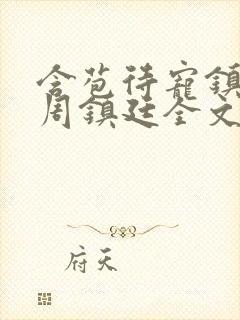 含苞待寵鎮
周鎮廷全文
府天